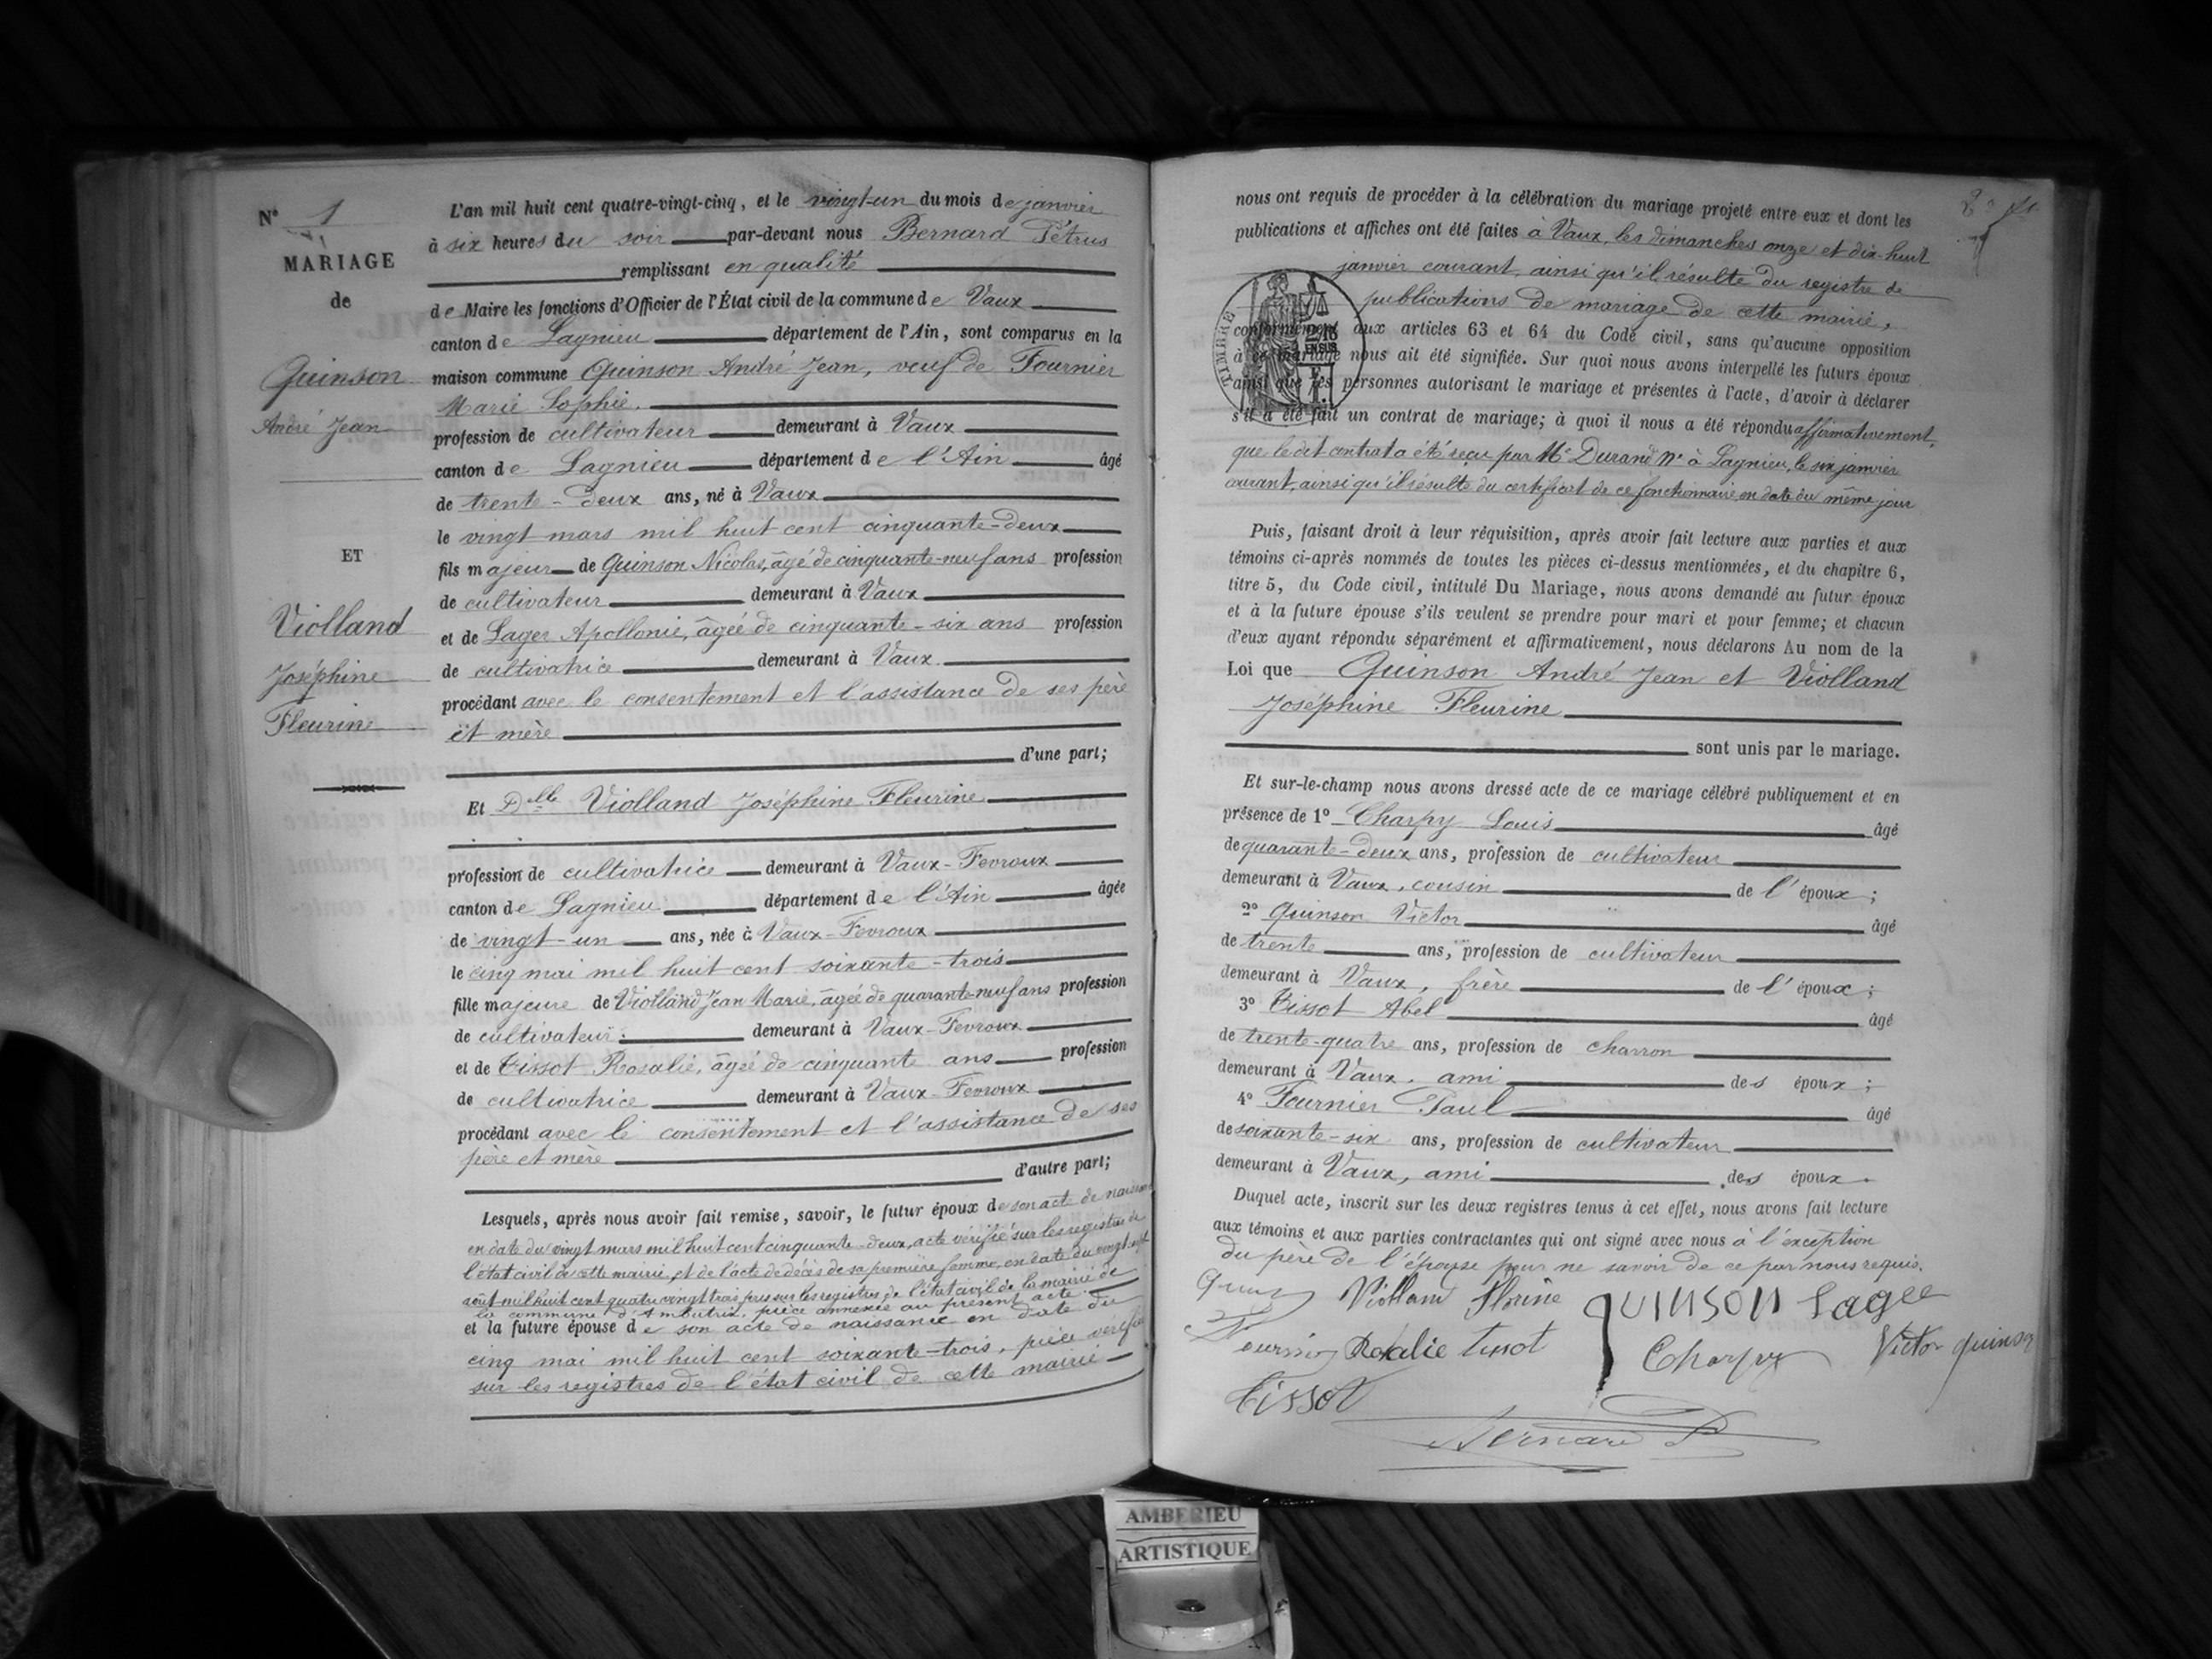 N° 1
MARIAGE
de
Quinson
André Jean
ET
Violland
Joséphine
Fleurine
L'an mil huit cent quatre-vingt-cinq, et le vingt-un du mois de janvier
à six heures du soir par-devant nous Bernard Pétrus
remplissant en qualité
de Maire les fonctions d'Officier de l'État civil de la commune de Vaux
canton de Lagnieu département de l'Ain, sont comparus en la
maison commune Quinson André Jean, veuf de Fournier
Marie Sophie.
profession de cultivateur demeurant à Vaux
canton de Lagnieu département de l'Ain âgé
de trente-deux ans, né à Vaux
le vingt mars mil huit cent cinquante-deux
fils majeur de Quinson Nicolas, âgé de cinquante-neuf ans profession
de cultivateur demeurant à Vaux
et de Lager Apollonie, âgée de cinquante-six ans profession
de cultivatrice demeurant à Vaux
procédant avec le consentement et l'assistance de ses père
et mère
d'une part;
Et Dlle Violland Joséphine Fleurine
profession de cultivatrice demeurant à Vaux-Fevroux
canton de Lagnieu département de l'Ain âgée
de vingt-un ans, née à Vaux-Fevroux
le cinq mai mil huit cent soixante-trois
fille majeure de Violland Jean Marie, âgée de quarante-neuf ans profession
de cultivateur demeurant à Vaux-Fevroux
et de Tissot Rosalie, âgée de cinquante ans profession
de cultivatrice demeurant à Vaux-Fevroux
procédant avec le consentement et l'assistance de ses
père et mère
d'autre part;
Lesquels, après nous avoir fait remise, savoir, le futur époux de son acte de
en date du vingt mars mil huit cent cinquante-deux, acte vérifié sur les registres de
l'état civil de cette mairie, et de l'acte de décès de sa première femme, en date du
août mil huit cent quatre vingt trois, sur les registres de l'état civil de la mairie de
la commune d'Ambutrix, pièce annexée au présent acte
et la future épouse de son acte de naissance en date du
cinq mai mil huit cent soixante-trois, pièce vérifiée
sur les registres de l'état civil de cette mairie
nous ont requis de procéder à la célébration du mariage projeté entre eux et dont les
publications et affiches ont été faites à Vaux, les dimanches onze et dix-huit
janvier courant, ainsi qu'il résulte du registre de
publications de mariage de cette mairie,
TIMBRE
2/10
EN SUS
conformément aux articles 63 et 64 du Code civil, sans qu'aucune opposition
à ce mariage nous ait été signifiée. Sur quoi nous avons interpellé les futurs époux
ainsi que les personnes autorisant le mariage et présentes à l'acte, d'avoir à déclarer
s'il a été fait un contrat de mariage; à quoi il nous a été répondu affirmativement,
que le dit contrat a été reçu par Me Durand Nre à Lagnieu, le six janvier
courant, ainsi qu'il résulte du certificat de ce fonctionnaire, en date du même jour
Puis, faisant droit à leur réquisition, après avoir fait lecture aux parties et aux
témoins ci-après nommés de toutes les pièces ci-dessus mentionnées, et du chapitre 6,
titre 5, du Code civil, intitulé Du Mariage, nous avons demandé au futur époux
et à la future épouse s'ils veulent se prendre pour mari et pour femme; et chacun
d'eux ayant répondu séparément et affirmativement, nous déclarons Au nom de la
Loi que Quinson André Jean et Violland
Joséphine Fleurine
sont unis par le mariage.
Et sur-le-champ nous avons dressé acte de ce mariage célébré publiquement et en
présence de 1° Charpy Louis âgé
de quarante-deux ans, profession de cultivateur
demeurant à Vaux, cousin de l'époux;
2° Quinson Victor âgé
de trente ans, profession de cultivateur
demeurant à Vaux, frère de l'époux;
3° Tissot Abel âgé
de trente-quatre ans, profession de charron
demeurant à Vaux, ami des époux;
4° Fournier Paul âgé
de soixante-six ans, profession de cultivateur
demeurant à Vaux, ami des époux.
Duquel acte, inscrit sur les deux registres tenus à cet effet, nous avons fait lecture
aux témoins et aux parties contractantes qui ont signé avec nous à l'exception
du père de l'épouse pour ne savoir de ce par nous requis.
Violland Florine QUINSON Lager
Rosalie Tissot Charpy Victor quinson
Tissot
Bernard P
AMBERIEU
ARTISTIQUE